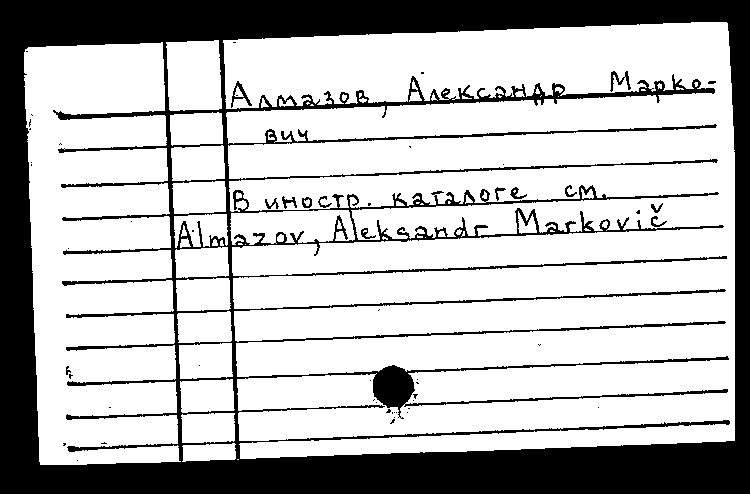 Алмазов, Александр Марко-
вич
В иностр. каталоге см.
Almazov, Aleksandr Markovič